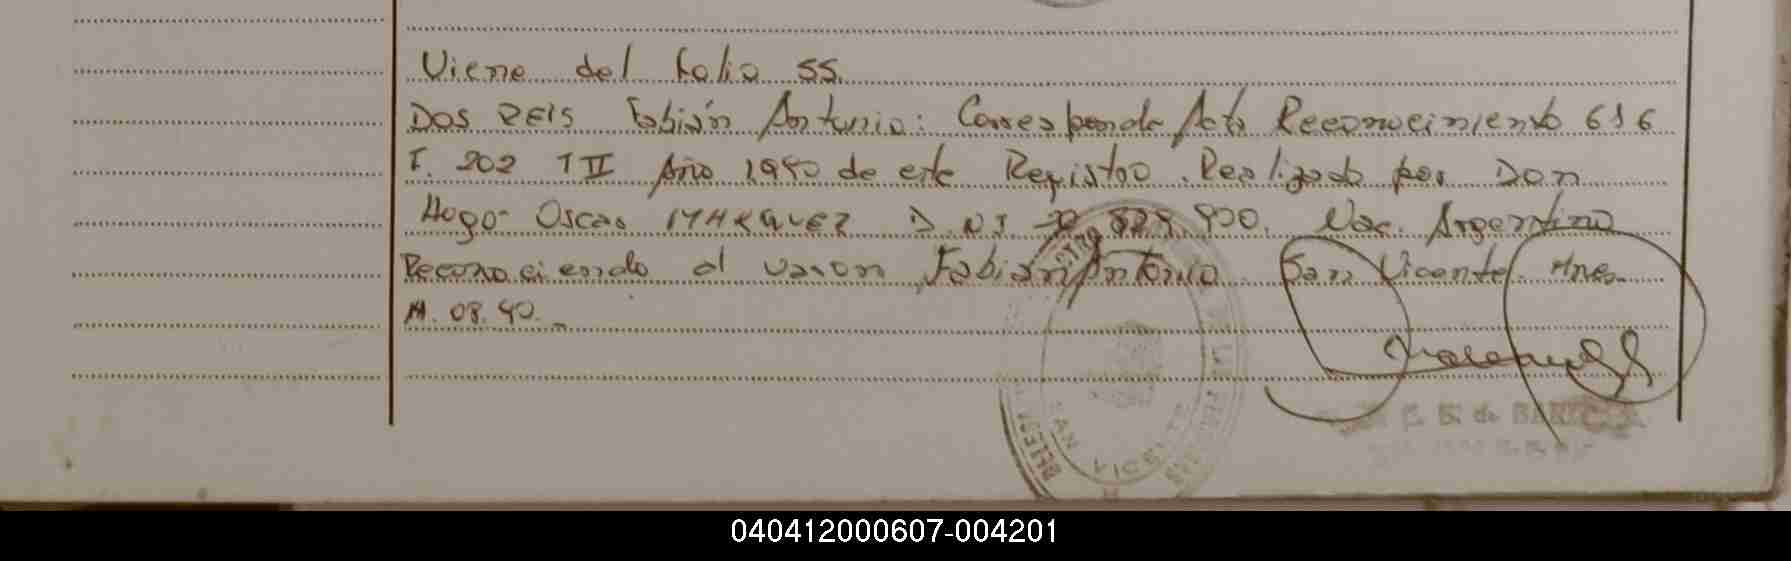 Viene del folio 55.
DOS REIS Fabián Antonio: Corresponde Acta Reconocimiento 616
F. 202 T II Año 1990 de este Registro. Realizado por Don
Hugo Oscar MARQUEZ D.N.I. 829.900. Nac. Argentino
Reconociendo al varon Fabian Antonio. San Vicente. Mnes.
08.90.
040412000607-004201